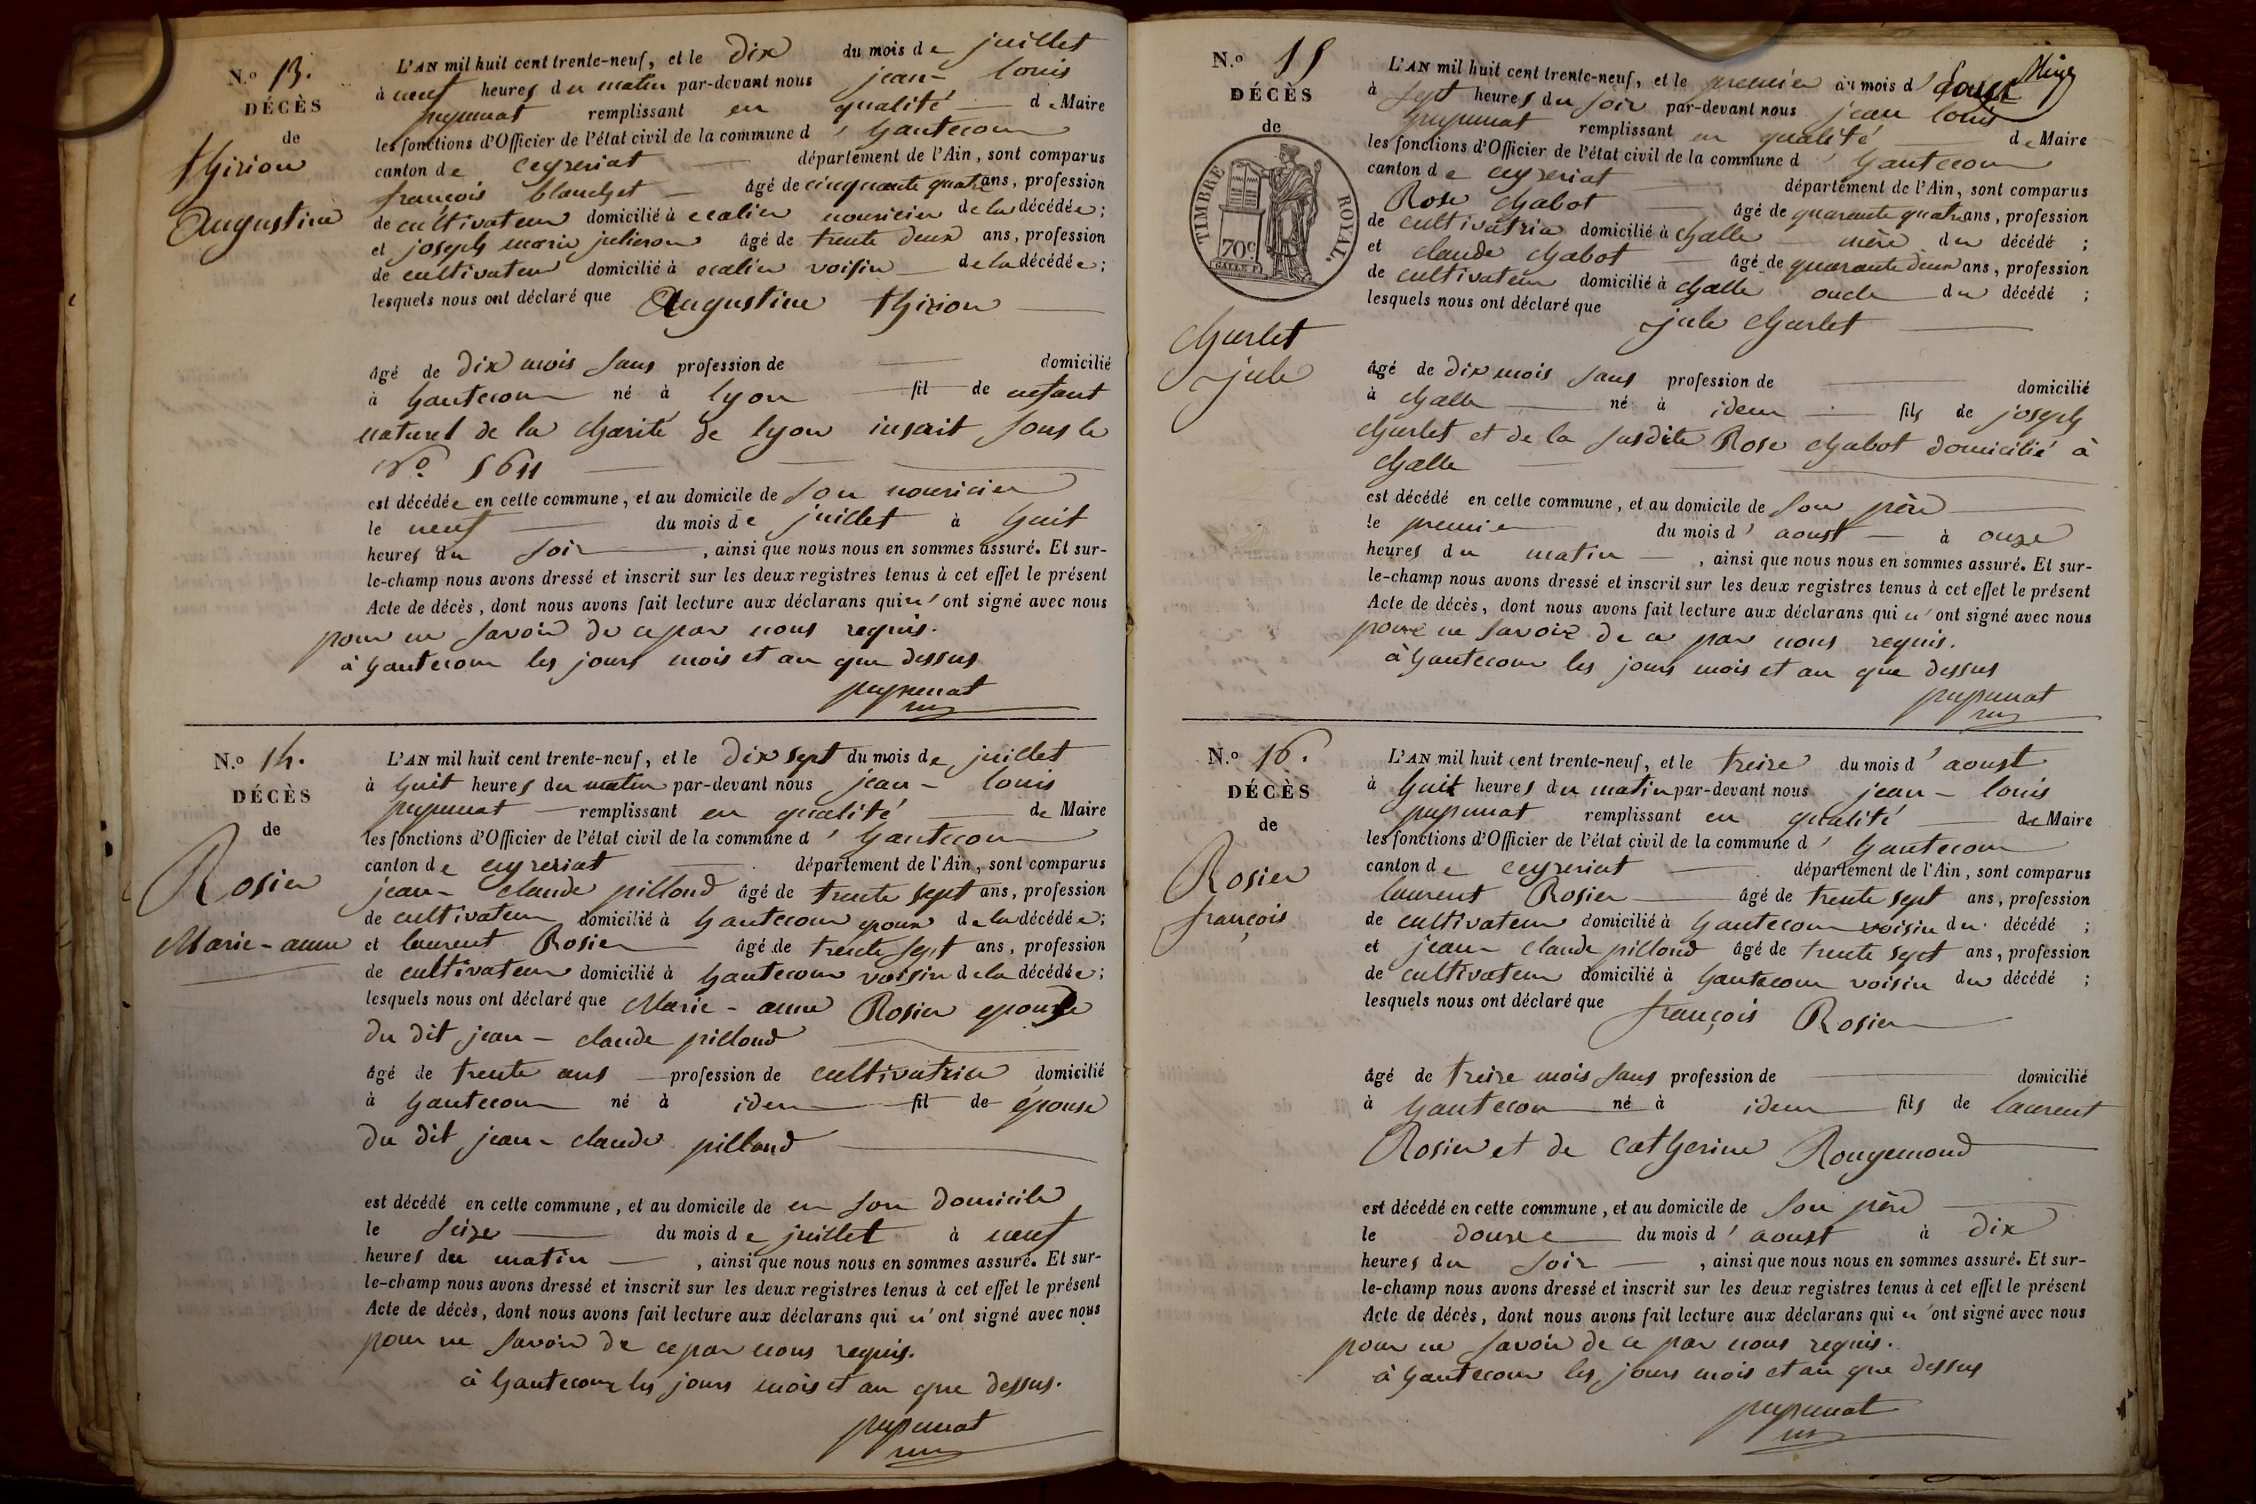 N.o 13.
DÉCÈS
de
thirion
Augustine
L'AN mil huit cent trente-neuf, et le dix du mois de juillet
à neuf heures du matin par-devant nous jean-louis
pupunat remplissant en qualité de Maire
les fonctions d'Officier de l'état civil de la commune d'hautecour
canton de ceyzeriat département de l'Ain, sont comparus
françois blanchet âgé de cinquante quatre ans, profession
de cultivateur domicilié à nouricier de la décédée;
et joseph marie âgé de trente deux ans, profession
de cultivateur domicilié à voisin de la décédée;
lesquels nous ont déclaré que Augustine thirion
âgé de dix mois sans profession de domicilié
à hautecour né à lyon fil de enfant
naturel de la charité de lyon inscrit sous le
No 5611
est décédée en cette commune, et au domicile de son nouricier
le neuf du mois de juillet à huit
heures du soir, ainsi que nous nous en sommes assuré. Et sur-
le-champ nous avons dressé et inscrit sur les deux registres tenus à cet effet le présent
Acte de décès, dont nous avons fait lecture aux déclarans qui n'ont signé avec nous
pour ne savoir de ce par nous requis.
à hautecour les jours mois et an que dessus
pupunat
N.o 14.
DÉCÈS
de
Rosier
Marie-anne
L'AN mil huit cent trente-neuf, et le dix sept du mois de juillet
à huit heures du matin par-devant nous jean-louis
pupunat remplissant en qualité de Maire
les fonctions d'Officier de l'état civil de la commune d'hautecour
canton de ceyzeriat département de l'Ain, sont comparus
jean-claude pilloud âgé de trente sept ans, profession
de cultivateur domicilié à hautecour epoux de la décédée;
et laurent Rosier âgé de trente sept ans, profession
de cultivateur domicilié à hautecour voisin de la décédée;
lesquels nous ont déclaré que Marie-anne Rosier epouse
du dit jean-claude pilloud
âgé de trente ans profession de cultivatrice domicilié
à hautecour né à idem fil de épouse
du dit jean-claude pilloud
est décédé en cette commune, et au domicile de en son domicile
le seize du mois de juillet à neuf
heures du matin, ainsi que nous nous en sommes assuré. Et sur-
le-champ nous avons dressé et inscrit sur les deux registres tenus à cet effet le présent
Acte de décès, dont nous avons fait lecture aux déclarans qui n'ont signé avec nous
pour ne savoir de ce par nous requis.
à hautecour les jours mois et an que dessus.
pupunat
N.o 15
DÉCÈS
de
TIMBRE ROYAL.
70c
charlet
jule
L'AN mil huit cent trente-neuf, et le premier du mois d'aoust
à sept heures du soir par-devant nous jean louis
pupunat remplissant en qualité de Maire
les fonctions d'Officier de l'état civil de la commune d'hautecour
canton de ceyzeriat département de l'Ain, sont comparus
Rose chabot âgé de quarante quatre ans, profession
de cultivatrice domicilié à challe mère du décédé;
et claude chabot âgé de quarante deux ans, profession
de cultivateur domicilié à challe oncle du décédé;
lesquels nous ont déclaré que
jule charlet
âgé de dix mois sans profession de domicilié
à challe né à idem fils de joseph
charlet et de la susdite Rose chabot domicilié à
challe
est décédé en cette commune, et au domicile de son père
le premier du mois d'aoust à onze
heures du matin, ainsi que nous nous en sommes assuré. Et sur-
le-champ nous avons dressé et inscrit sur les deux registres tenus à cet effet le présent
Acte de décès, dont nous avons fait lecture aux déclarans qui n'ont signé avec nous
pour ne savoir de ce par nous requis.
à hautecour les jours mois et an que dessus
pupunat
N.o 16.
DÉCÈS
de
Rosier
françois
L'AN mil huit cent trente-neuf, et le treize du mois d'aoust
à huit heures du matin par-devant nous jean-louis
pupunat remplissant en qualité de Maire
les fonctions d'Officier de l'état civil de la commune d'hautecour
canton de ceyzeriat département de l'Ain, sont comparus
laurent Rosier âgé de trente sept ans, profession
de cultivateur domicilié à hautecour voisin du décédé;
et jean claude pilloud âgé de trente sept ans, profession
de cultivateur domicilié à hautecour voisin du décédé;
lesquels nous ont déclaré que françois Rosier
âgé de treize mois sans profession de domicilié
à hautecour né à idem fils de laurent
Rosier et de catherine Rougemond
est décédé en cette commune, et au domicile de son père
le douze du mois d'aoust à dix
heures du soir, ainsi que nous nous en sommes assuré. Et sur-
le-champ nous avons dressé et inscrit sur les deux registres tenus à cet effet le présent
Acte de décès, dont nous avons fait lecture aux déclarans qui n'ont signé avec nous
pour ne savoir de ce par nous requis.
à hautecour les jours mois et an que dessus
pupunat